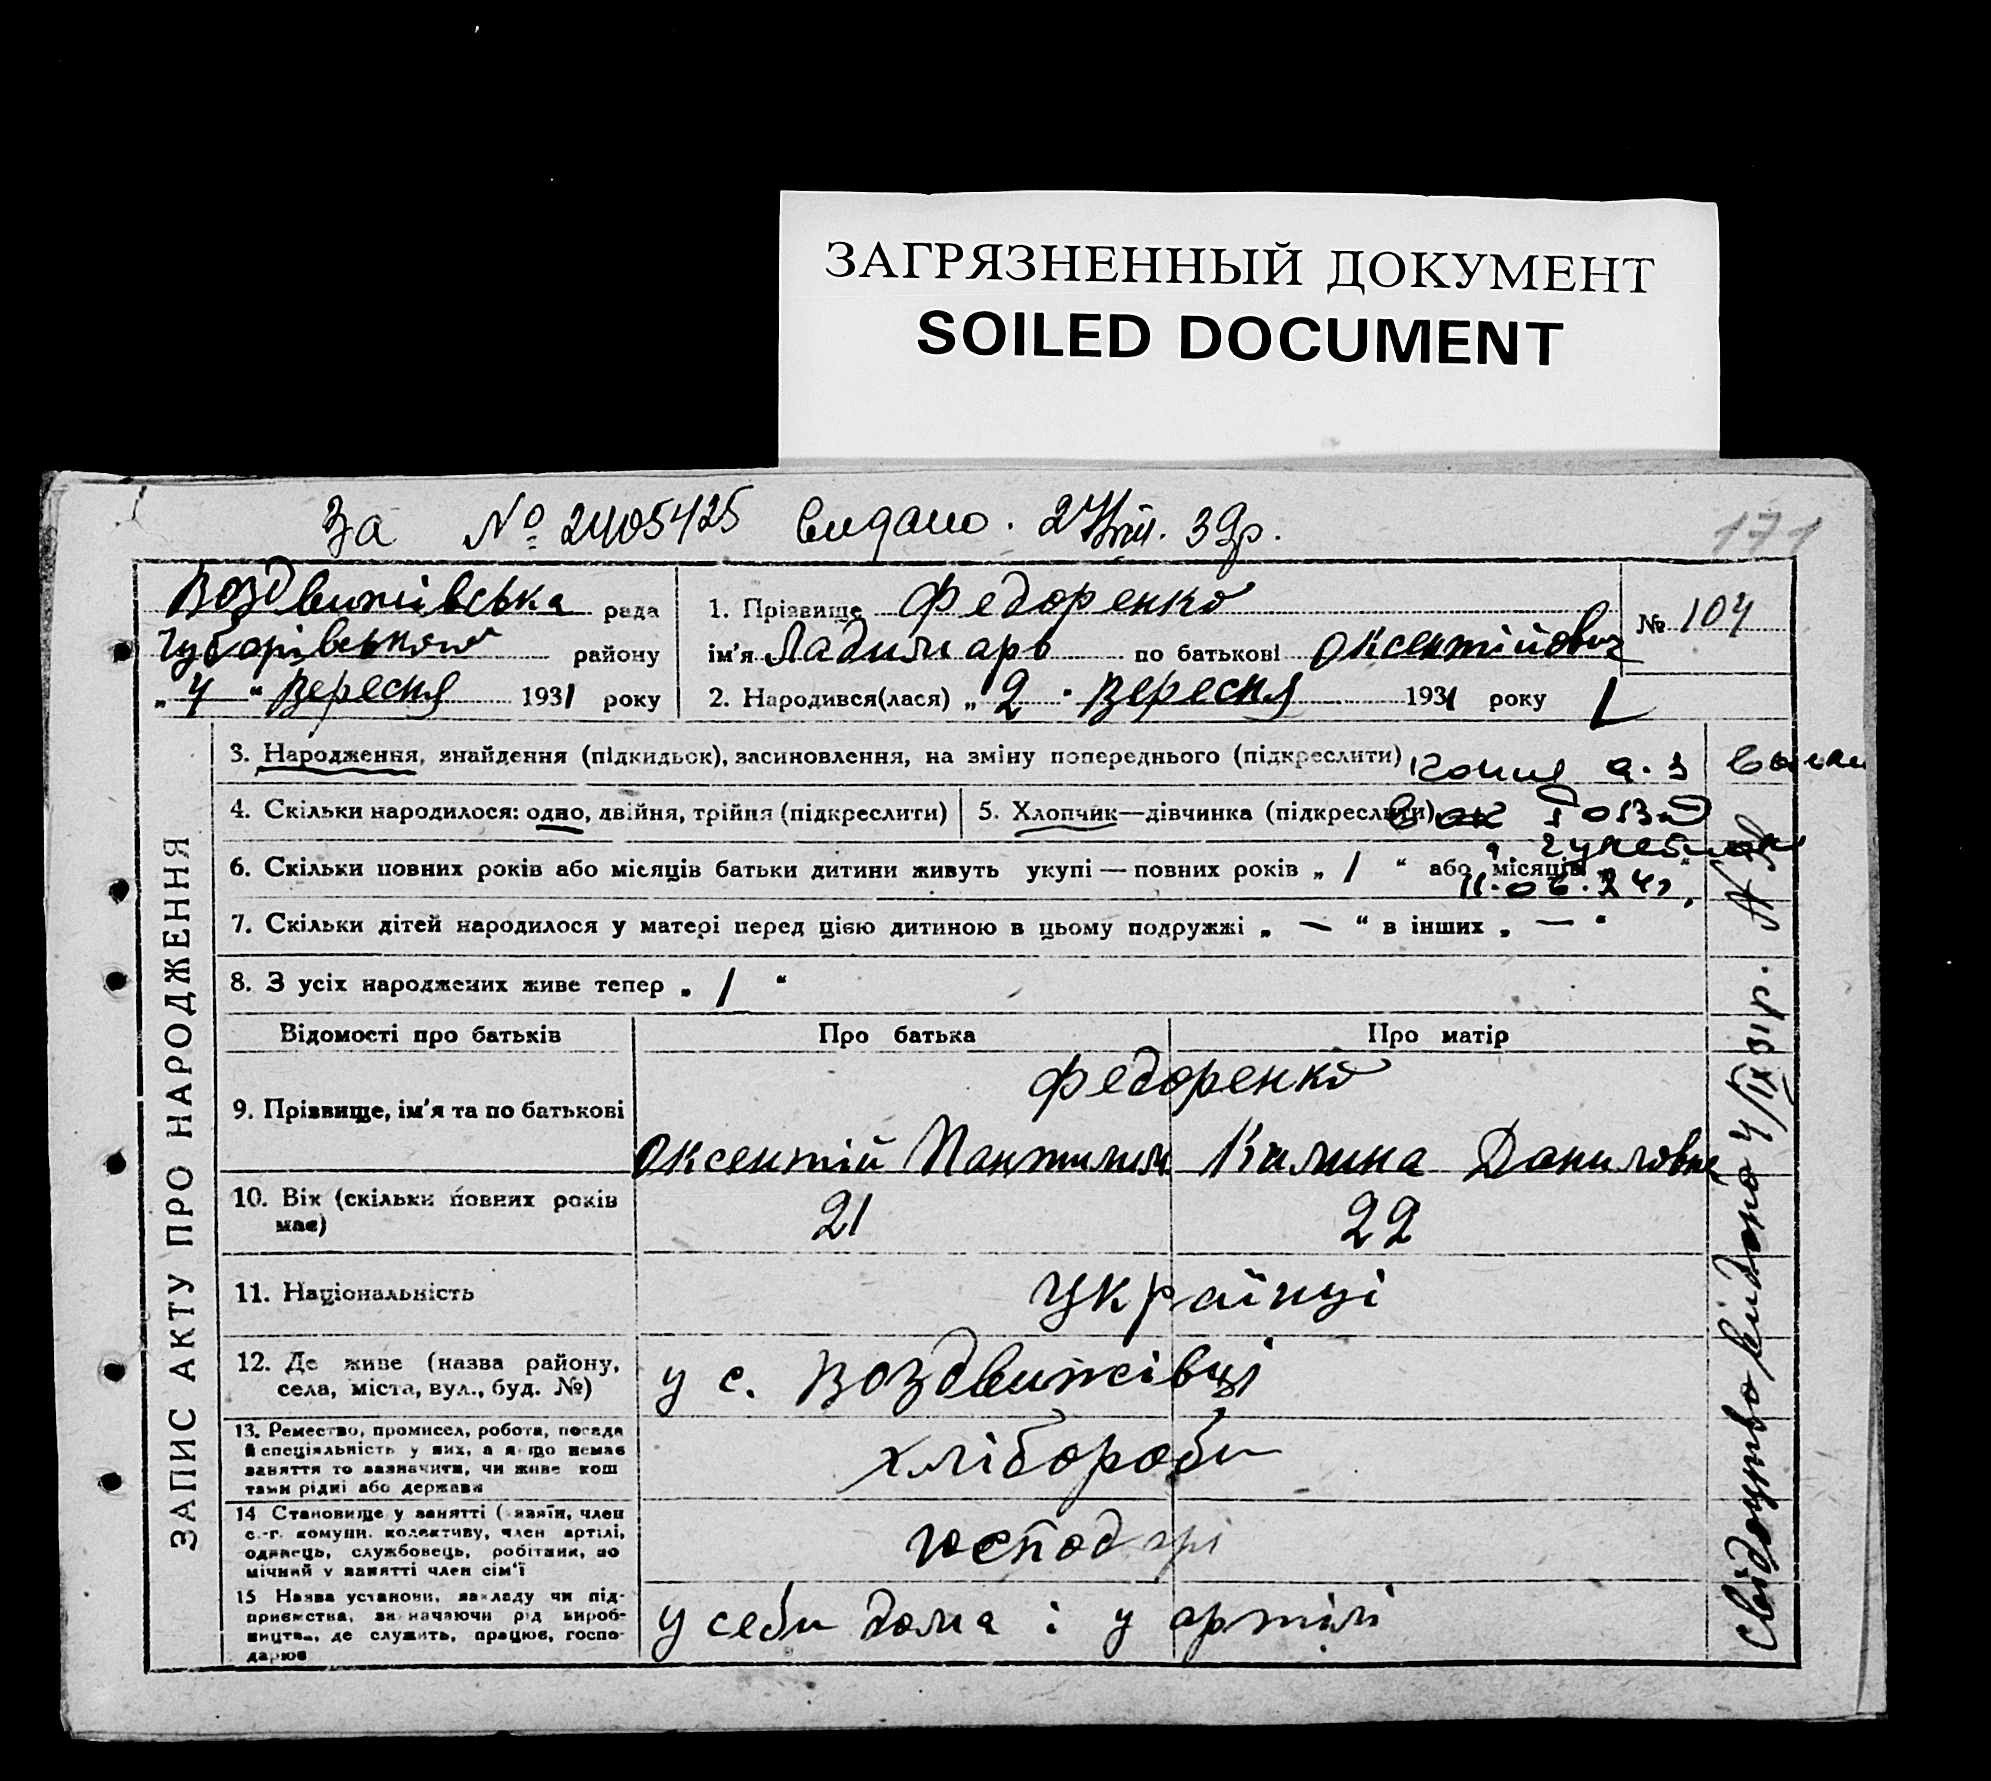 ЗАГРЯЗНЕННЫЙ ДОКУМЕНТ
SOILED DOCUMENT
За № 2405425 видано. 39р.
171
Воздвижівська рада
району
„ 4 “ Вересня 1931 року
1. Прізвище Федоренко
ім'я Ладимарь по батькові Оксентійович
2. Народився(лася) „ 2 “ Вересня 1931 року
№ 104
ЗАПИС АКТУ ПРО НАРОДЖЕННЯ
3. Народження, знайдення (підкидьок), засиновлення, на зміну попереднього (підкреслити)
4. Скільки народилося: одно, двійня, трійня (підкреслити)
5. Хлопчик—дівчинка (підкреслити)
6. Скільки повних років або місяців батьки дитини живуть укупі — повних років „ 1 “ або місяців
11.06.24г.
7. Скільки дітей народилося у матері перед цією дитиною в цьому подружжі „ — “ в інших „ — “
8. З усіх народжених живе тепер „ 1 “
Відомості про батьків
Про батька
Про матір
9. Прізвище, ім'я та по батькові
Федоренко
Оксентій
Килина Даниловна
10. Вік (скільки повних років має)
21
22
11. Національність
Українці
12. Де живе (назва району,
села, міста, вул., буд. №)
у с. Воздвижівці
13. Ремество, промисел, робота, посада
й спеціяльність у них, а якщо немає
заняття то зазначити, чи живе кош
тами рідні або держави
хлібороби
14 Становище у занятті (хазяїн, член
с.-г. комуни. колективу, член артілі,
одинець, службовець, робітник, по
мічний у занятті член сім'ї
господарі
15 Назва установи, закладу чи під-
приємства, зазначаючи рід вироб-
ництва, де служить, працює, госпо-
дарює
у себи дома і у артілі
Свідоцтво видано 4/IX 31р.